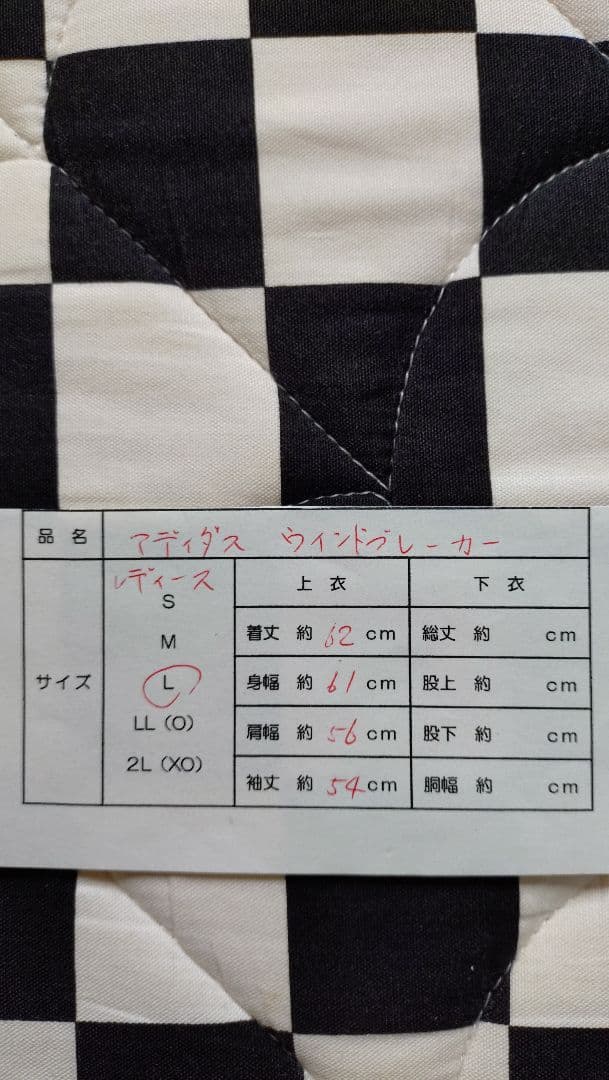 品 名 アディダス ウインドブレーカー
サイズ
レディース
S
M
L
LL (O)
2L (XO)
上 衣
着丈 約 62 cm
身幅 約 61 cm
肩幅 約 56 cm
袖丈 約 54 cm
下 衣
総丈 約 cm
股上 約 cm
股下 約 cm
胴幅 約 cm